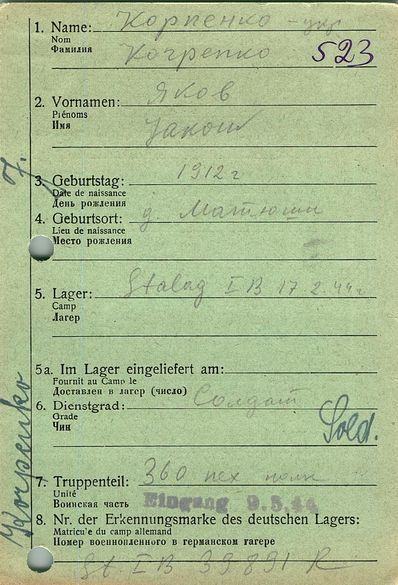 1. Name: Корпенко - укр
Nom
Фамилия
Когрепко 523
2. Vornamen: Яков
Prénoms
Имя
Jakow
7.
3. Geburtstag: 1912 г
Date de naissance
День рождения
4. Geburtsort: д. Матюши
Lieu de naissance
Место рождения
5. Lager: Stalag I B 17 2.44 г
Camp
Лагерь
5a. Im Lager eingeliefert am:
Fournit au Camp le
Доставлен в лагерь (число)
6. Dienstgrad: Солдат
Grade
Чин
Sold.
Korpenko
7. Truppenteil: 360 пех полк
Unité
Воинская часть
Eingang 9.5.44
8. Nr. der Erkennungsmarke des deutschen Lagers:
Matricu'e du camp allemand
Номер военнопленного в германском лагере
St I B 39891 R